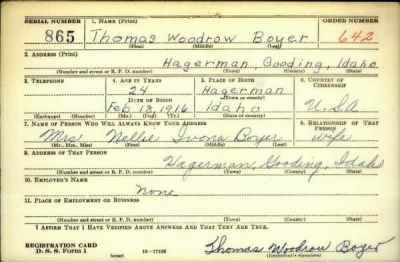 SERIAL NUMBER 1. NAME (Print) ORDER NUMBER
865 Thomas Woodrow Boyer 642
(First) (Middle) (Last)
2. ADDRESS (Print)
Hagerman, Gooding, Idaho
(Number and street or R. F. D. number) (Town) (County) (State)
3. TELEPHONE 4. AGE IN YEARS 5. PLACE OF BIRTH 6. COUNTRY OF CITIZENSHIP
24 Hagerman
DATE OF BIRTH (Town or county)
Feb 13, 1916 Idaho U.S.A
(Exchange) (Number) (Mo.) (Day) (Yr.) (State or country)
7. NAME OF PERSON WHO WILL ALWAYS KNOW YOUR ADDRESS 8. RELATIONSHIP OF THAT PERSON
Mrs Nellie Ivona Boyer wife
(Mr., Mrs., Miss) (First) (Middle) (Last)
9. ADDRESS OF THAT PERSON
Hagerman, Gooding, Idaho
(Number and street or R. F. D. number) (Town) (County) (State)
10. EMPLOYER'S NAME
None
11. PLACE OF EMPLOYMENT OR BUSINESS
(Number and street or R. F. D. number) (Town) (County) (State)
I AFFIRM THAT I HAVE VERIFIED ABOVE ANSWERS AND THAT THEY ARE TRUE.
REGISTRATION CARD
D. S. S. Form 1 (over) 16—17105 Thomas Woodrow Boyer
(Registrant's signature)